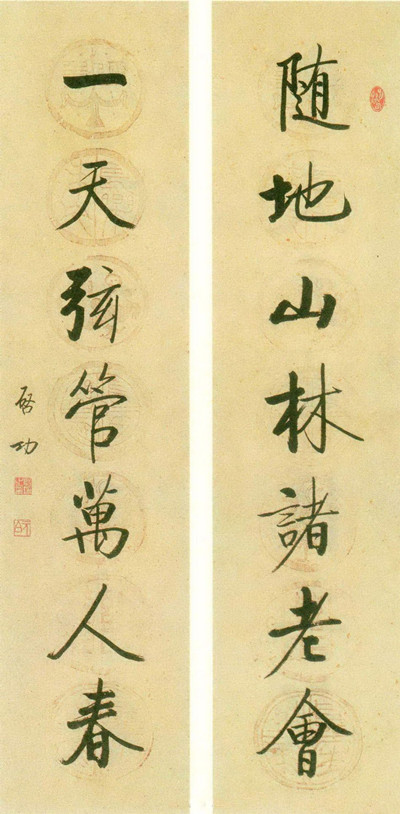 随地山林諸老會
一天弦管萬人春
啟功